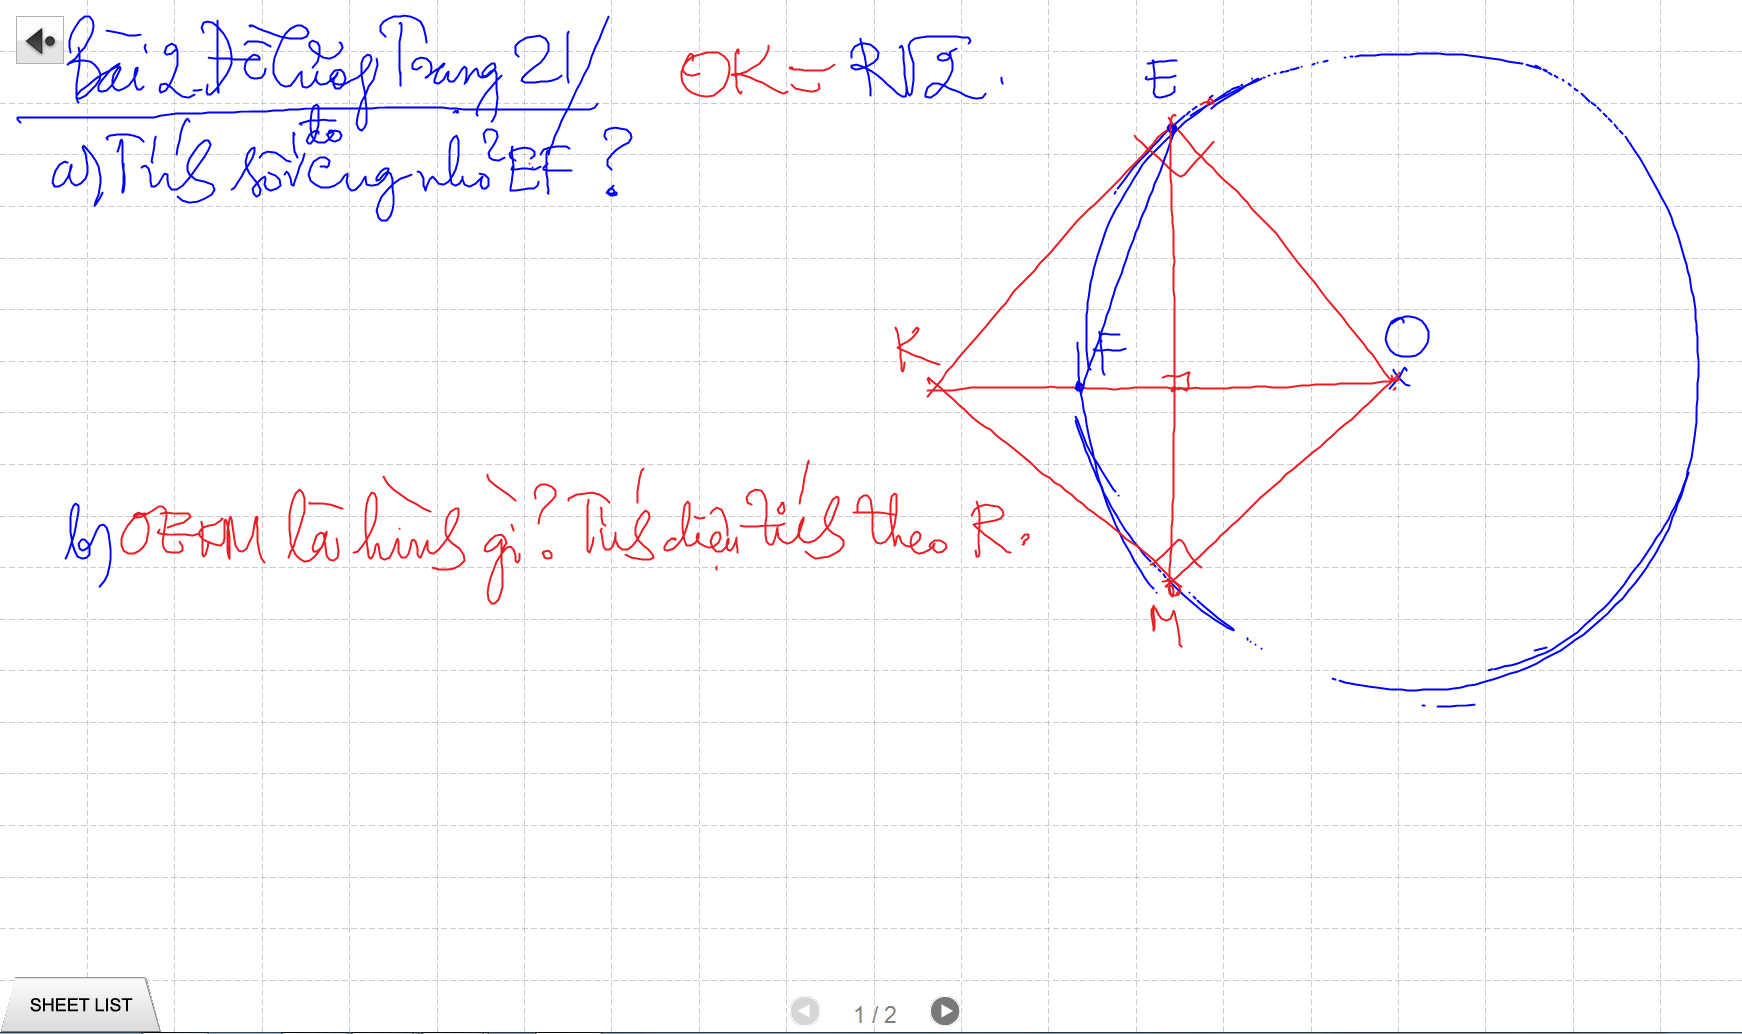 Bài 2. Đề Cương Trang 21/
OK = R√2.
E
a) Tính số đo cung nhỏ EF ?
K
F
O
b) OEKM là hình gì? Tính diện tích theo R.
M
SHEET LIST
1 / 2